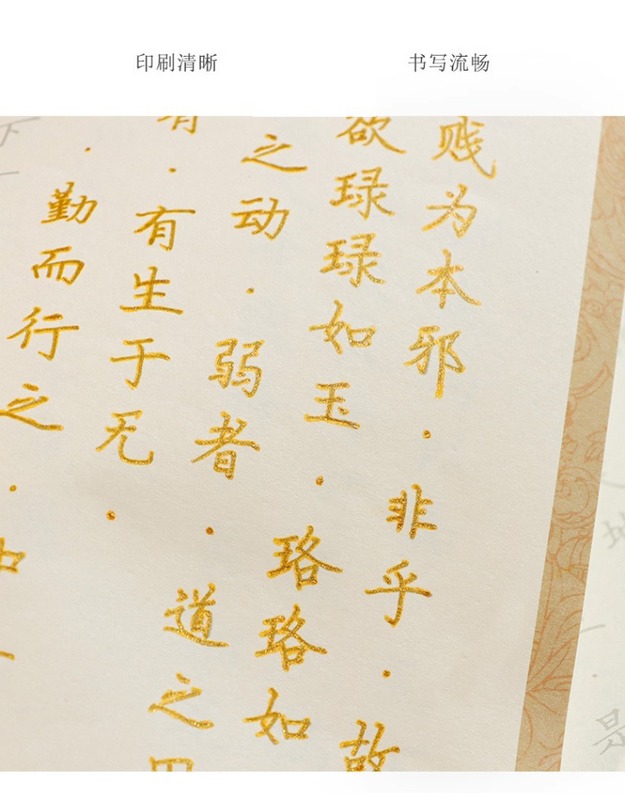 印刷清晰
书写流畅
贱为本邪·非乎·故
欲琭琭如玉·珞珞如
之动·弱者·道之用
有·有生于无·
·勤而行之·中